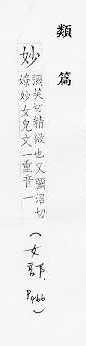 類篇
妙
彌笑切精微也又彌沼切
嫽妙女皃文一重音一
(女部. P466)